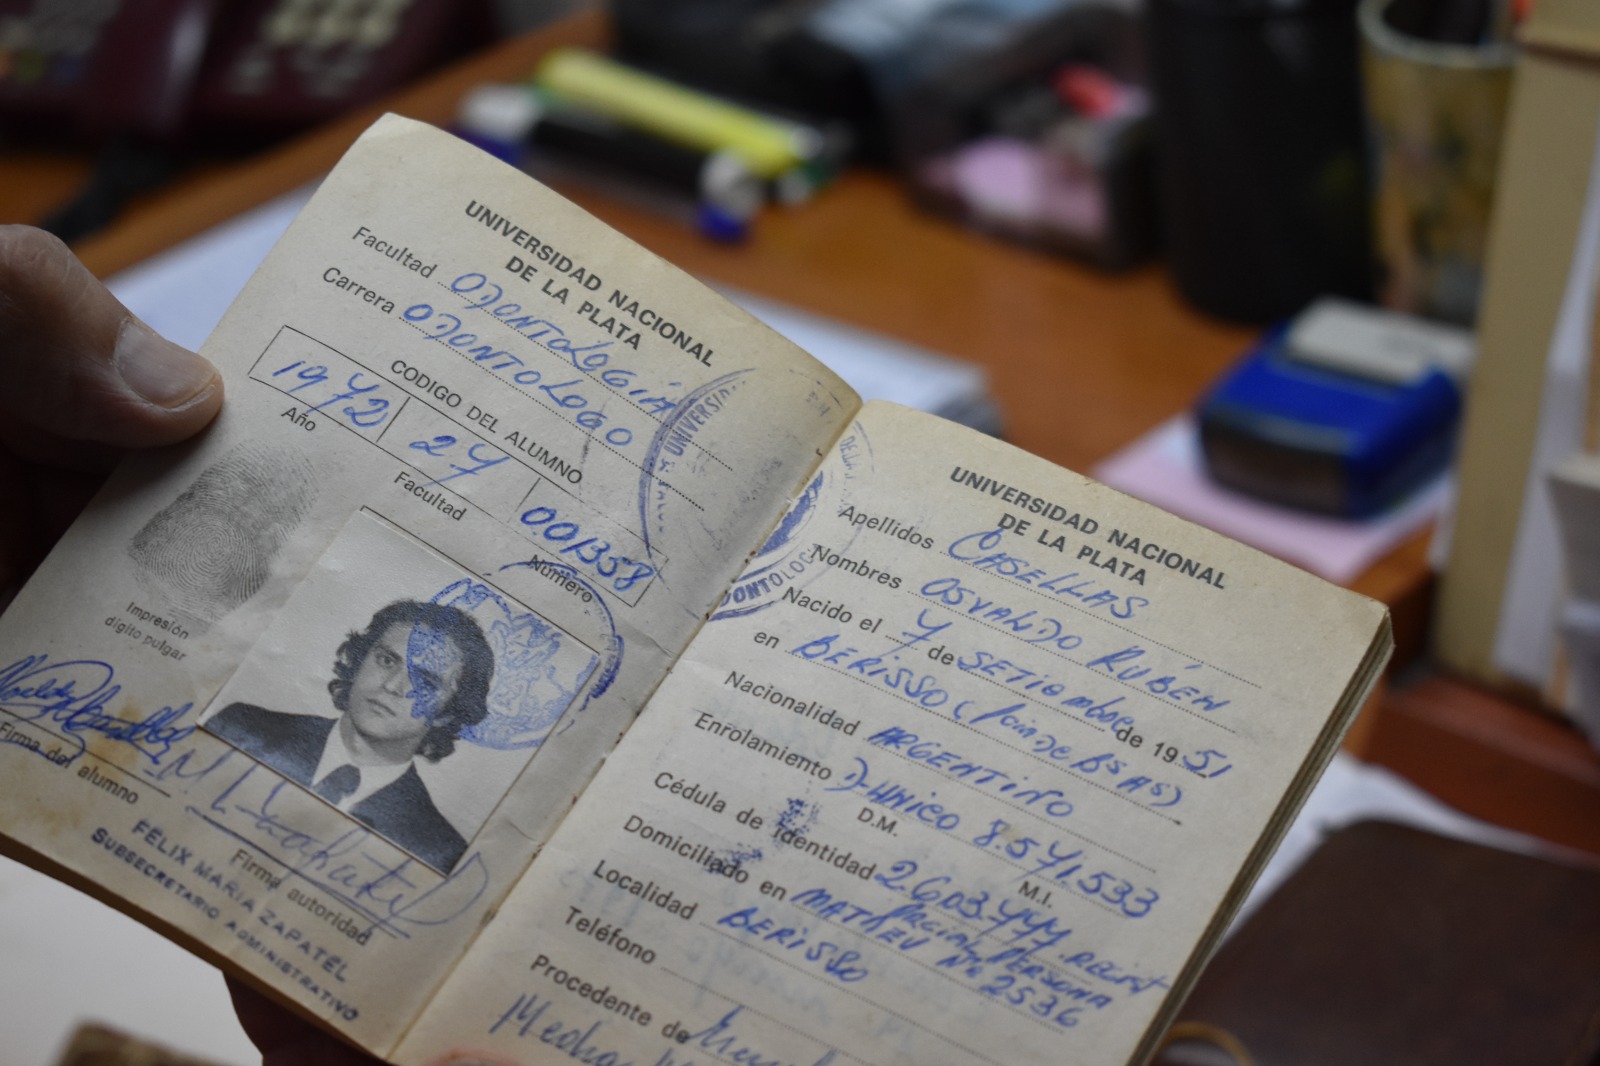 UNIVERSIDAD NACIONAL
DE LA PLATA
Facultad ODONTOLOGIA
Carrera ODONTOLOGO
CODIGO DEL ALUMNO
1972 27 001358
Año Facultad Número
Impresión
dígito pulgar
Firma del alumno
Firma autoridad
FELIX MARIA ZAPATEL
SUBSECRETARIO ADMINISTRATIVO
UNIVERSIDAD NACIONAL
DE LA PLATA
Apellidos CASELLAS
Nombres OSVALDO RUBÉN
Nacido el 7 de SETIEMBRE de 1951
en BERISSO (
Nacionalidad ARGENTINO
Enrolamiento D-UNICO 8.571.533
D.M. M.I.
Cédula de identidad 2.603.777
Domiciliado en
MATRZU Nº 2536
Localidad BERISSO
Teléfono
Procedente de